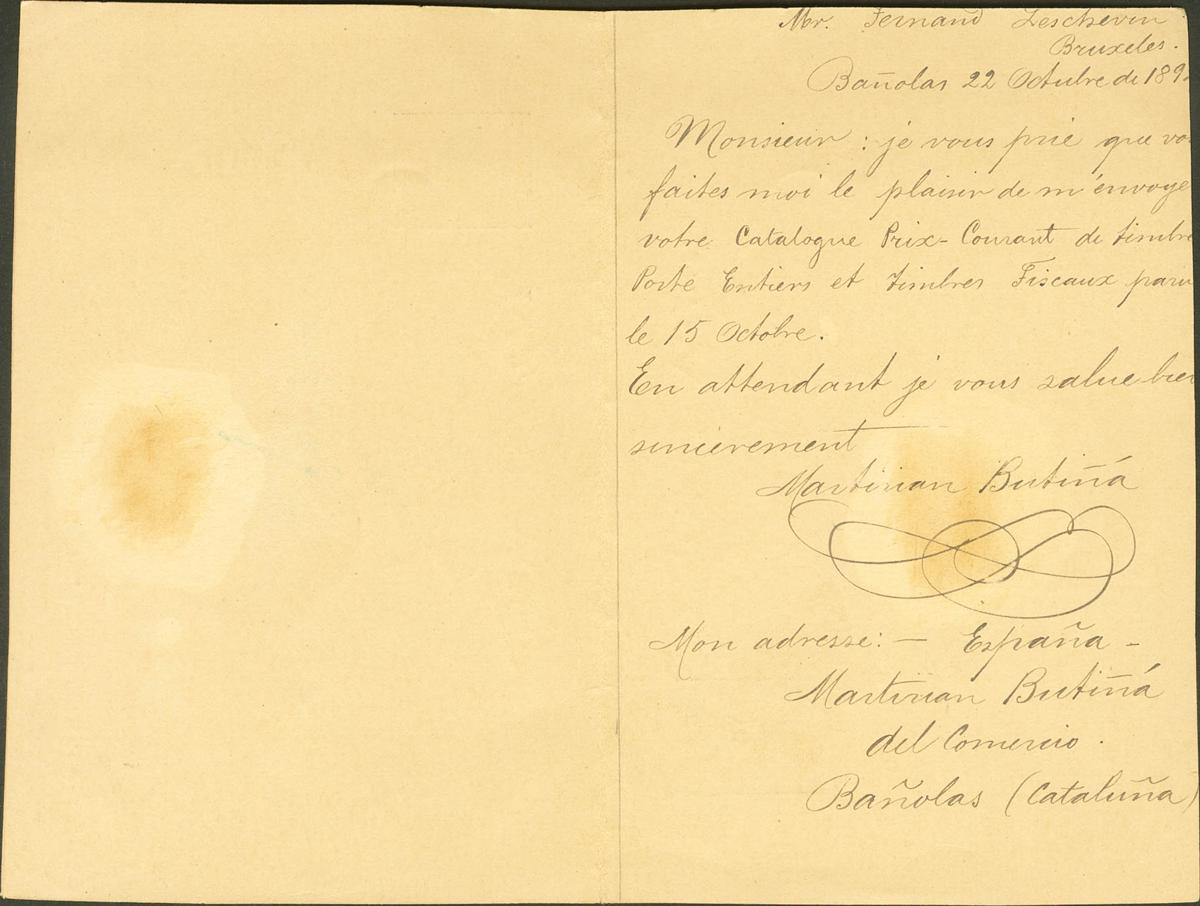 Mr. Fernand Leschevin
Bruxeles.
Bañolas 22 Octubre de 189
Monsieur : je vous prie que vo
faites moi le plaisir de m'envoye
votre Catalogue Prix-Courant de timbre
Poste Entiers et timbres Fiscaux paru
le 15 Octobre.
En attendant je vous salue bien
sincèrement
Martirian Butiñá
Mon adresse: — España —
Martirian Butiñá
del Comercio.
Bañolas (Cataluña)